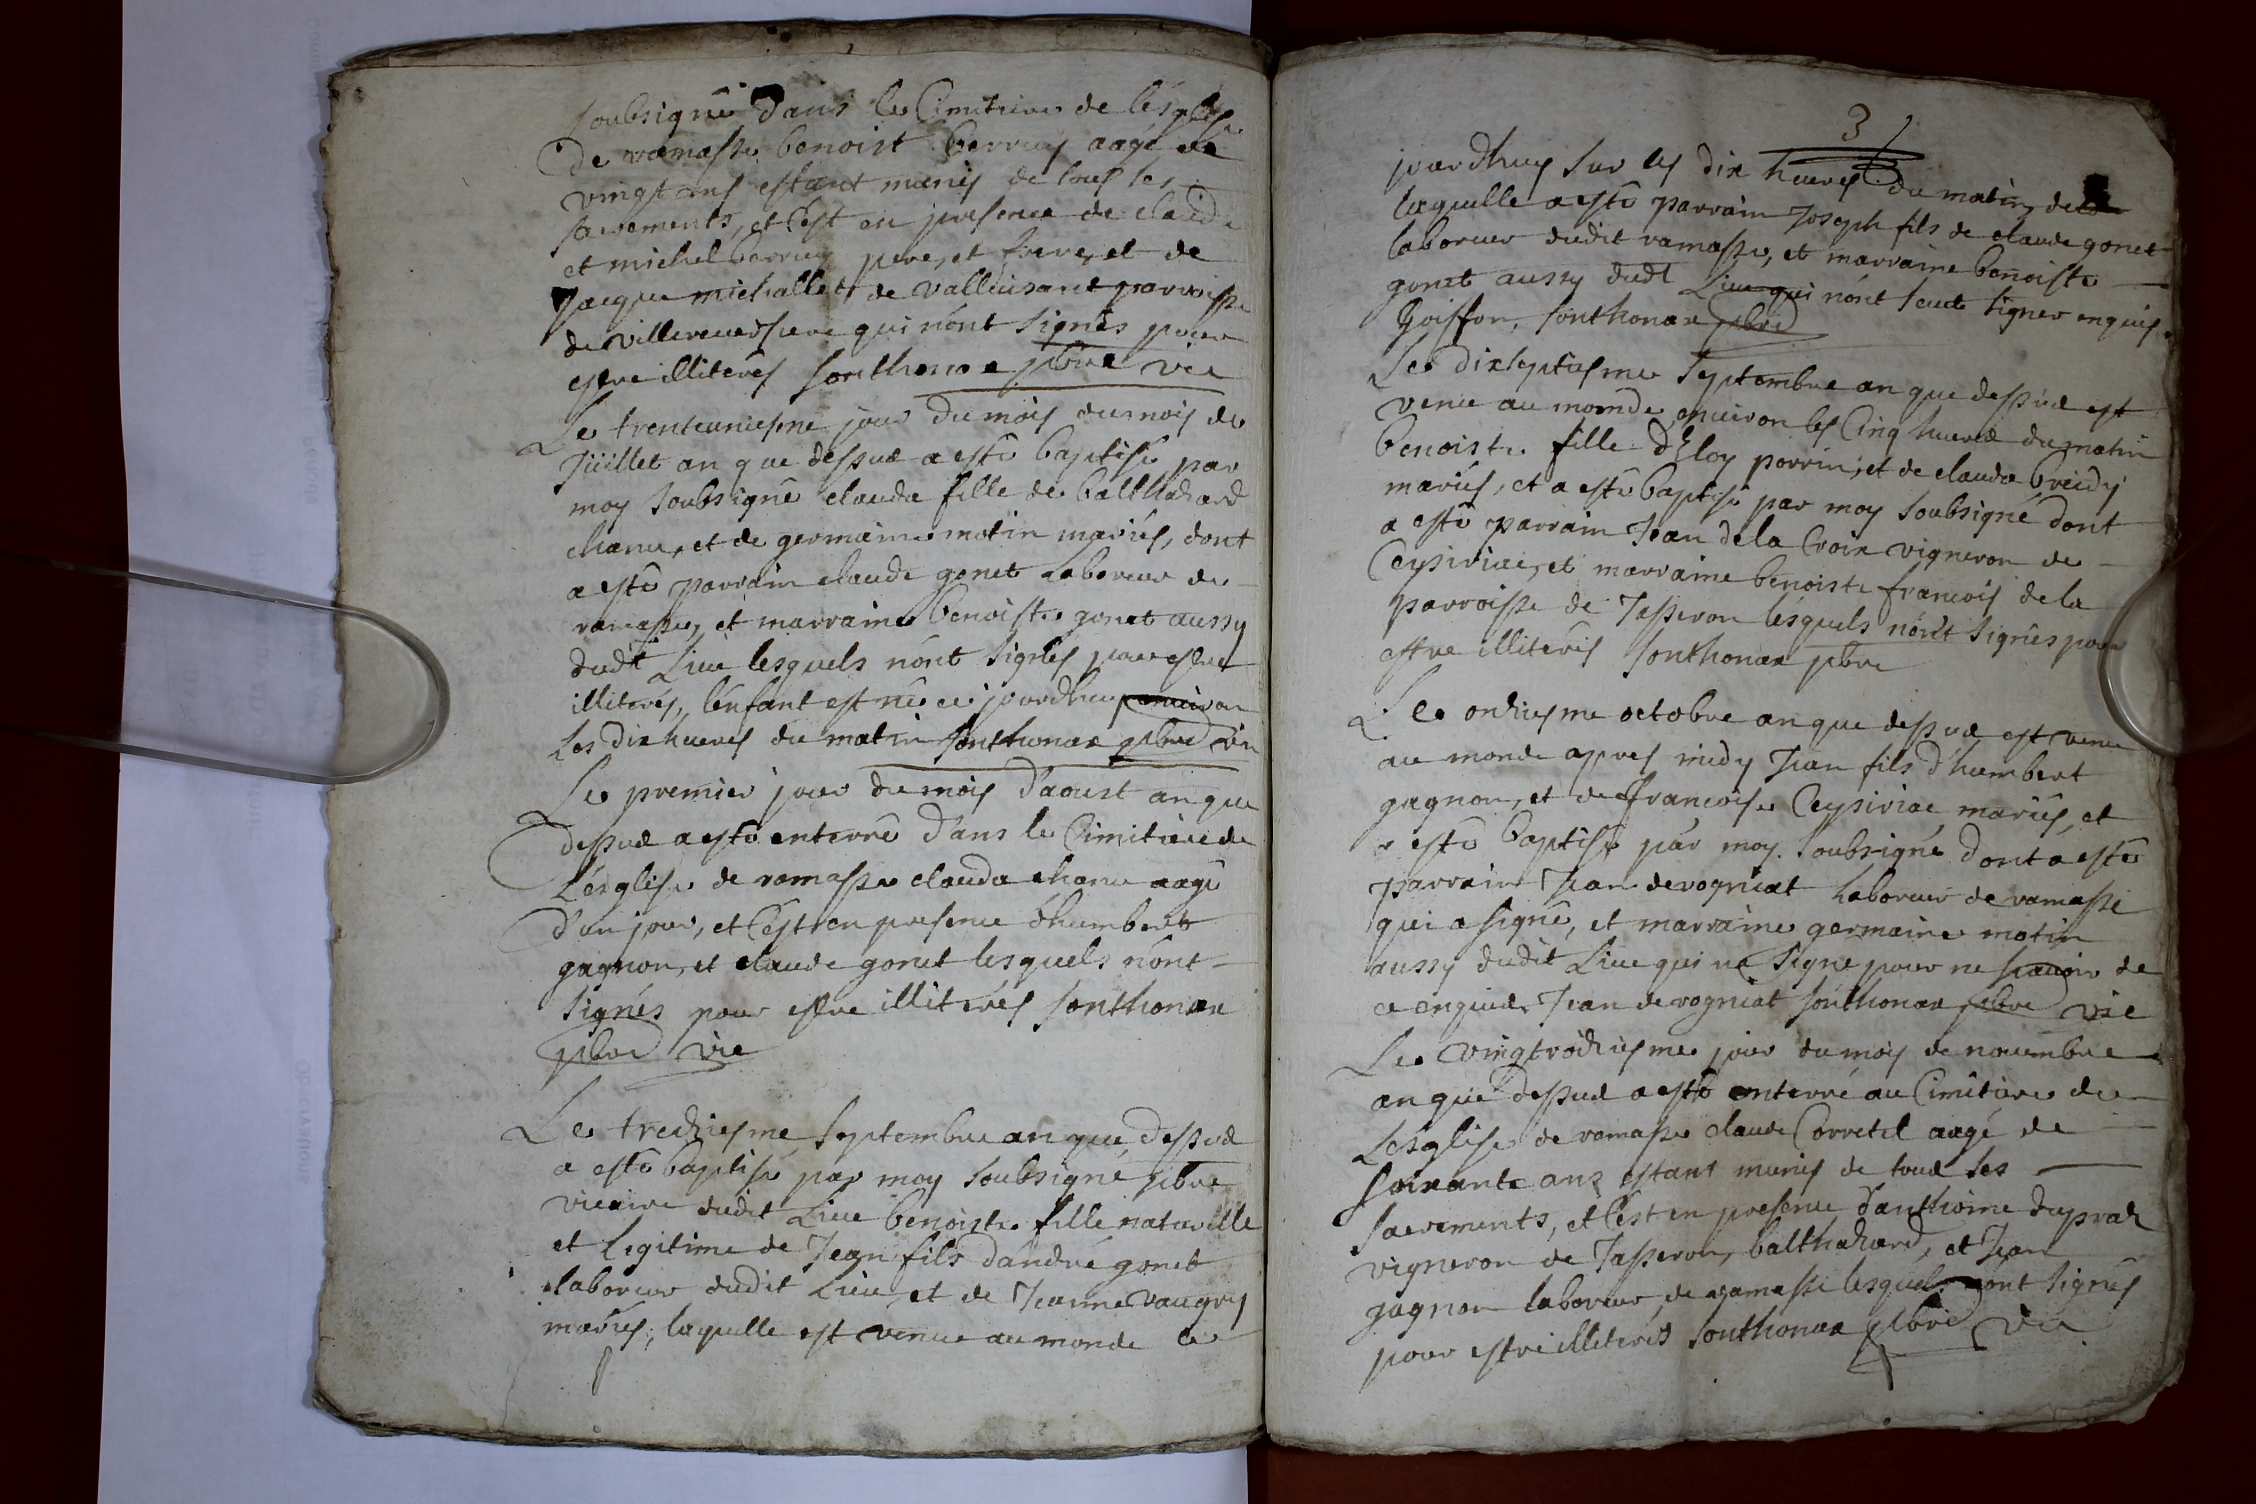 soubsigné dans le Cimitiere de lésglise
de ramasse benoist perrin aagé de
vingt ans estant munis de tous les
sacrements, et cest en presence de claude
et michel perrin pere, et frere, et de
Jacque michallet de valleusant parroisse
de villereversure qui nónt signés pour
estre illiterés sonthonax pbre vic
Le trenteuniesme jour du mois du mois de
Juillet an que dessus a esté baptisé par
moy soubsigné clauda fille de balthazard
chanu, et de germaine motin mariés, dont
a esté parrain claude gonet laboreur de
ramasse, et marraine benoiste gonet aussy
dudt Lieu lesquels nónt signés pour estre
illiterés, lénfant est né ce jourdhuy environ
les dix heures du matin sonthonax pbre vic
Le premier jour du mois d'aoust an que
dessus a esté enterré d'ans le Cimitiere de
Lésglise de ramasse clauda chanu aagé
d'un jour, et cést en presence d'humbert
gagnon, et claude gonet lesquels nónt
signés pour estre illiterés sonthonax
pbre vic
Le treziesme septembre an que dessus
a esté baptisé par moy soubsigné pbre
vicaire dudit Lieu benoiste fille naturelle
et legitime de Jean fils d'andré gonet
laboreur dudit Lieu, et de Jeanne vaugris
mariés, laquelle est venue au monde ce
3
jourdhuy sur les dix heures du matin, de
laquelle a esté parrain Joseph fils de claude gonet
laboreur dudit ramasse, et marraine benoiste
gonet aussy dudt Lieu qui nónt sceut signer enquis
Goiffon, sonthonax pbre
Le dixseptiesme septembre an que dessus est
venue au monde environ les Cinq heures du matin
benoiste fille d'Eloy perrin, et de clauda breidy
mariés, et a esté baptisé par moy soubsigné dont
a esté parrain Jean dela Croix vigneron de
Ceysiriac, et marraine benoiste francois dela
parroisse de Jasseron lésquels nónt signés pour
estre illiterés sonthonax pbre
Le onziesme octobre an que dessus est venu
au monde apres midy Jean fils d'humbert
gagnon, et de francoise Ceysiriac mariés, et
a esté baptisé par moy soubsigné dont a esté
parrain Jean derogniat laboreur de ramasse
qui a signé, et marraine germaine motin
aussy dudit Lieu qui na signe pour ne scavoir de
ce enquise Jean derogniat sonthonax pbre vic
Le vingtroiziesme jour du mois de novembre
an que dessus a esté enterré au Cimitiere de
Lésglise de ramasse claude Corretel aagé de
soixante ans estant munis de tous les
sacrements, et cést en presence d'anthoine dupraz
vigneron de Jasseron, balthazard, et Jean
gagnon laboreur de ramasse lesquels nónt signés
pour estre illiterés sonthonax pbre vic